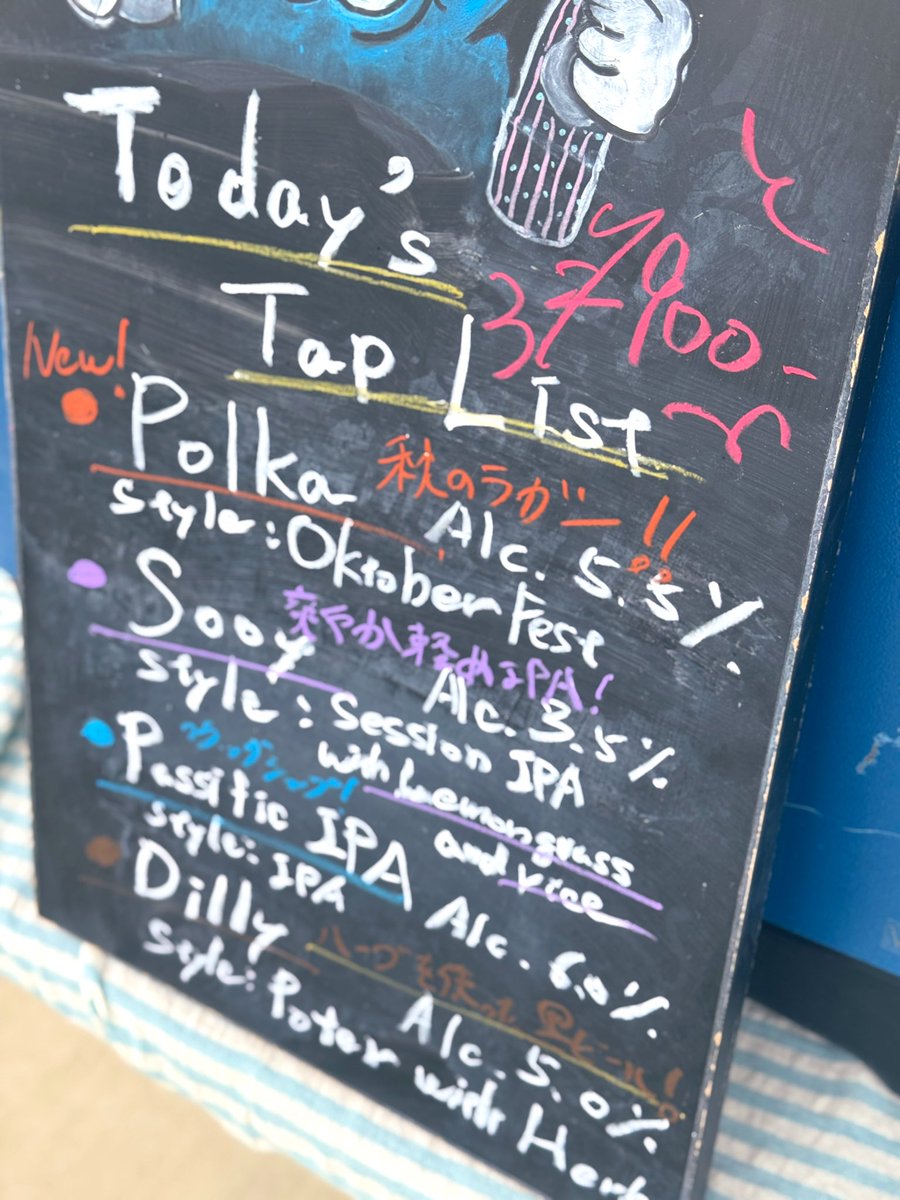 Today's
Tap List
すべて900-
New!
Polka 秋のラガー!!
Alc. 5.5%
style: Oktober Fest
Sooy 爽やか軽めIPA!
Alc. 3.5%
style: Session IPA
with Lemongrass
and rice
Passific IPA
Alc. 6.0%
style: IPA
Dilly ハーブを使った黒ビール!
Alc. 5.0%
style: Poter with Herb